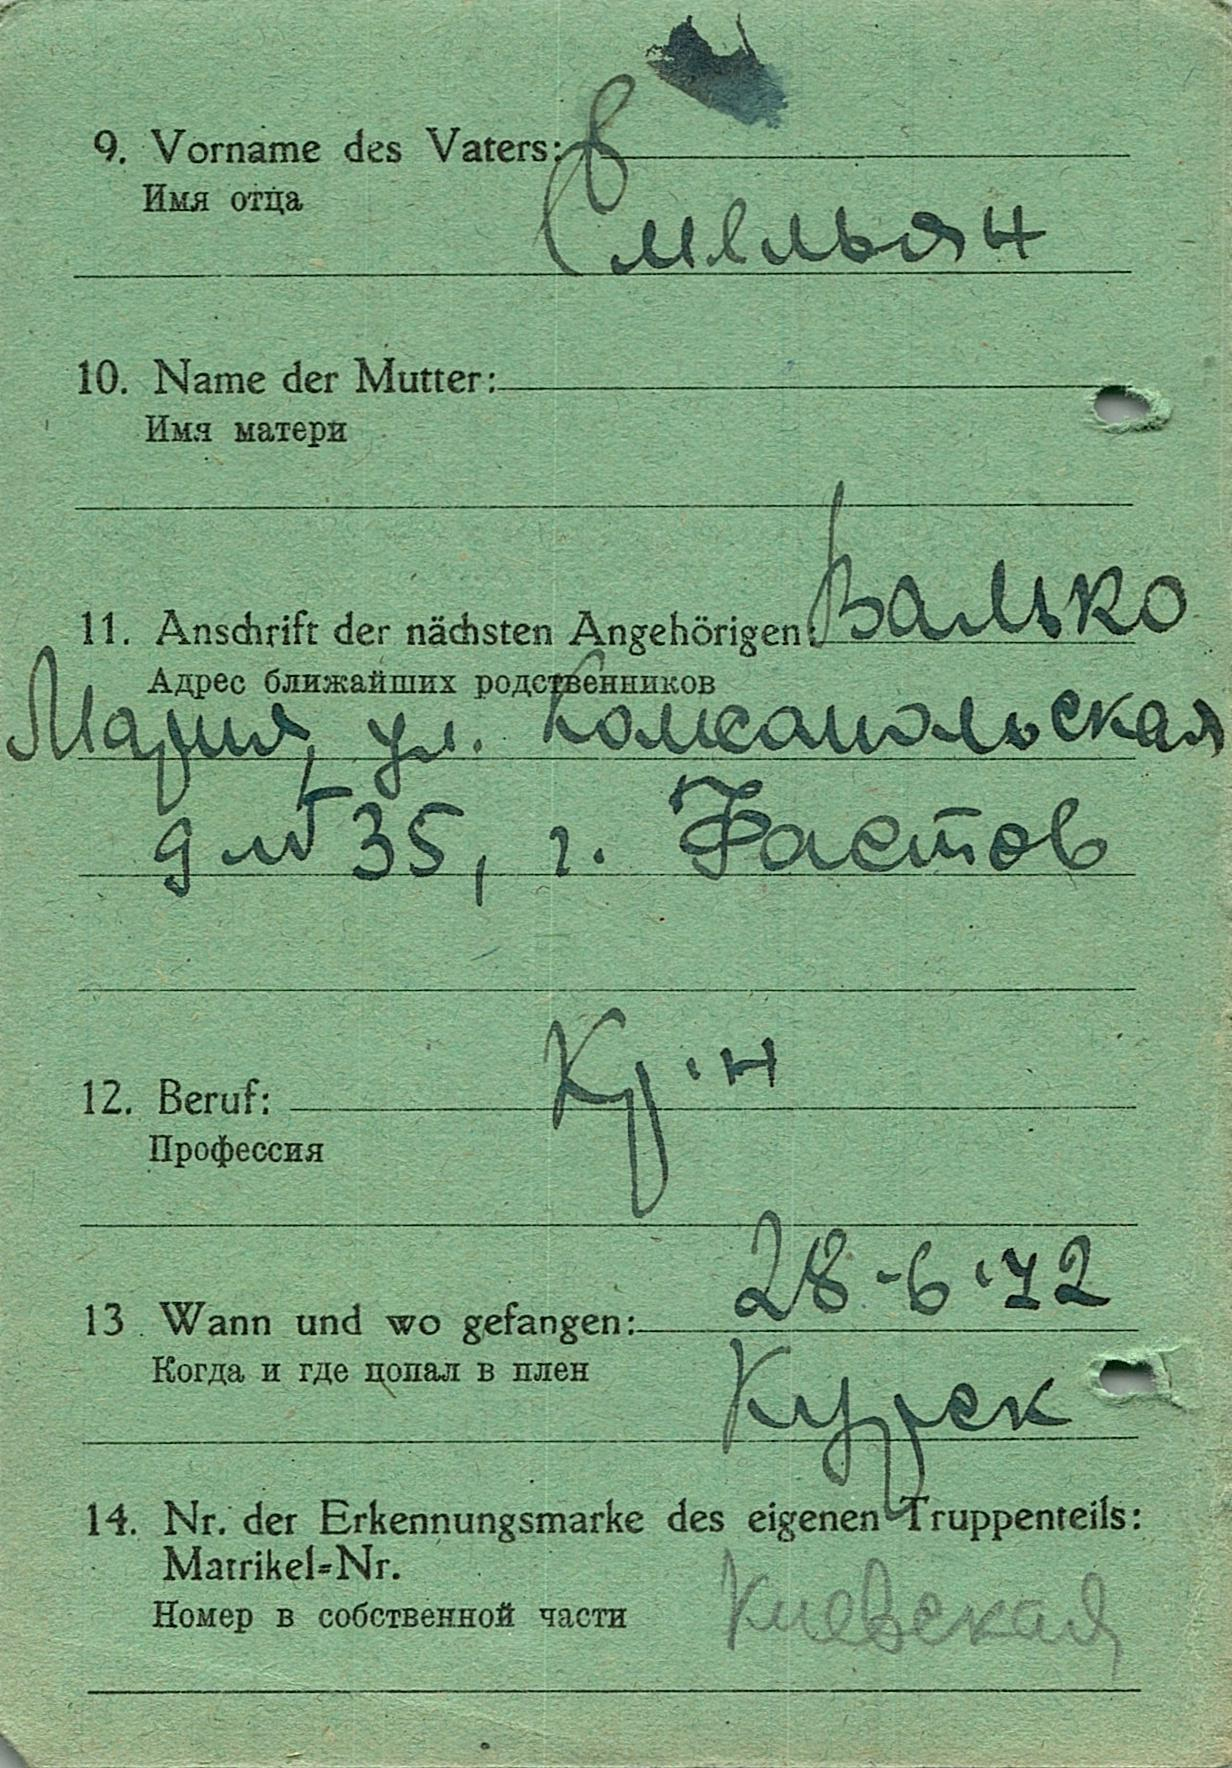 9. Vorname des Vaters:
Имя отца
Емельян
10. Name der Mutter:
Имя матери
11. Anschrift der nächsten Angehörigen: Валько
Адрес ближайших родственников
Мария, ул. Комсомольская
35, г. Фастов
12. Beruf:
Профессия
13. Wann und wo gefangen: 28-6-42
Когда и где попал в плен
Курск
14. Nr. der Erkennungsmarke des eigenen Truppenteils:
Matrikel=Nr.
Номер в собственной части
Киевская